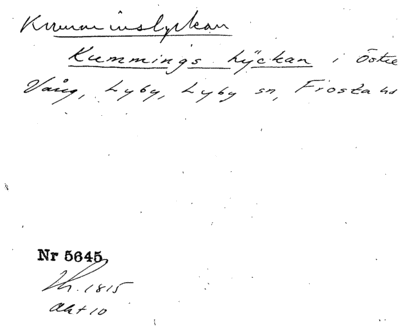 Kummingslyckan
Kummings Lyckan i Östre
Vång, Lyby, Lyby sn, Frosta hd
Nr 5645
1815
akt 10